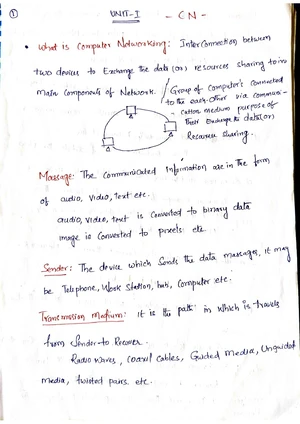 ① UNIT-I - CN -
• What is Computer Networking: InterConnection between
two devices to Exchange the data (or) resources sharing
main Components of Network. / Group of Computer's Connected
to the each-other via Commun-
cation medium purpose of
Their Exchange the data (or)
Resource sharing.
Massage: The Communicated Information are in the form
of audio, Video, Text etc.
audio, video, text is Converted to binary data
image is Converted to pixels etc
Sender: The device which Sends the data massages, it may
be Telephone, Work Station, hub, Computer etc.
Transmission Medium: it is the path in which is travels
from Sender to Recever.
Radio waves, coaxil Cables, Guided Media, Unguided
media, twisted pairs etc.